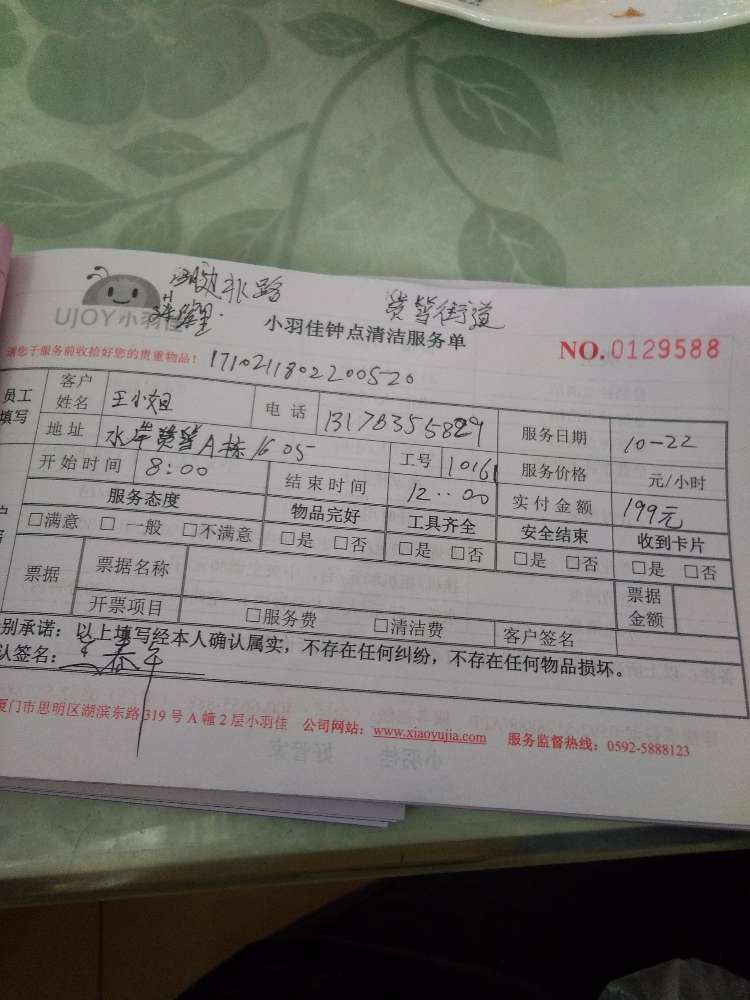 湖边水路 筼筜街道
UJOY小羽佳
小羽佳钟点清洁服务单 NO.0129588
请您于服务前收拾好您的贵重物品! 171021180220052​0
员工填写 客户姓名 王小姐 电话 13178355829 服务日期 10-22
地址 水岸筼筜A栋1605 工号 10161 服务价格 元/小时
开始时间 8:00 结束时间 12:00 实付金额 199元
服务态度 物品完好 工具齐全 安全结束 收到卡片
□满意 □一般 □不满意 □是 □否 □是 □否 □是 □否 □是 □否
票据 票据名称 票据金额
开票项目 □服务费 □清洁费 客户签名
别承诺:以上填写经本人确认属实,不存在任何纠纷,不存在任何物品损坏。
认签名:
厦门市思明区湖滨东路319号A幢2层小羽佳 公司网站:www.xiaoyujia.com 服务监督热线:0592-5888123